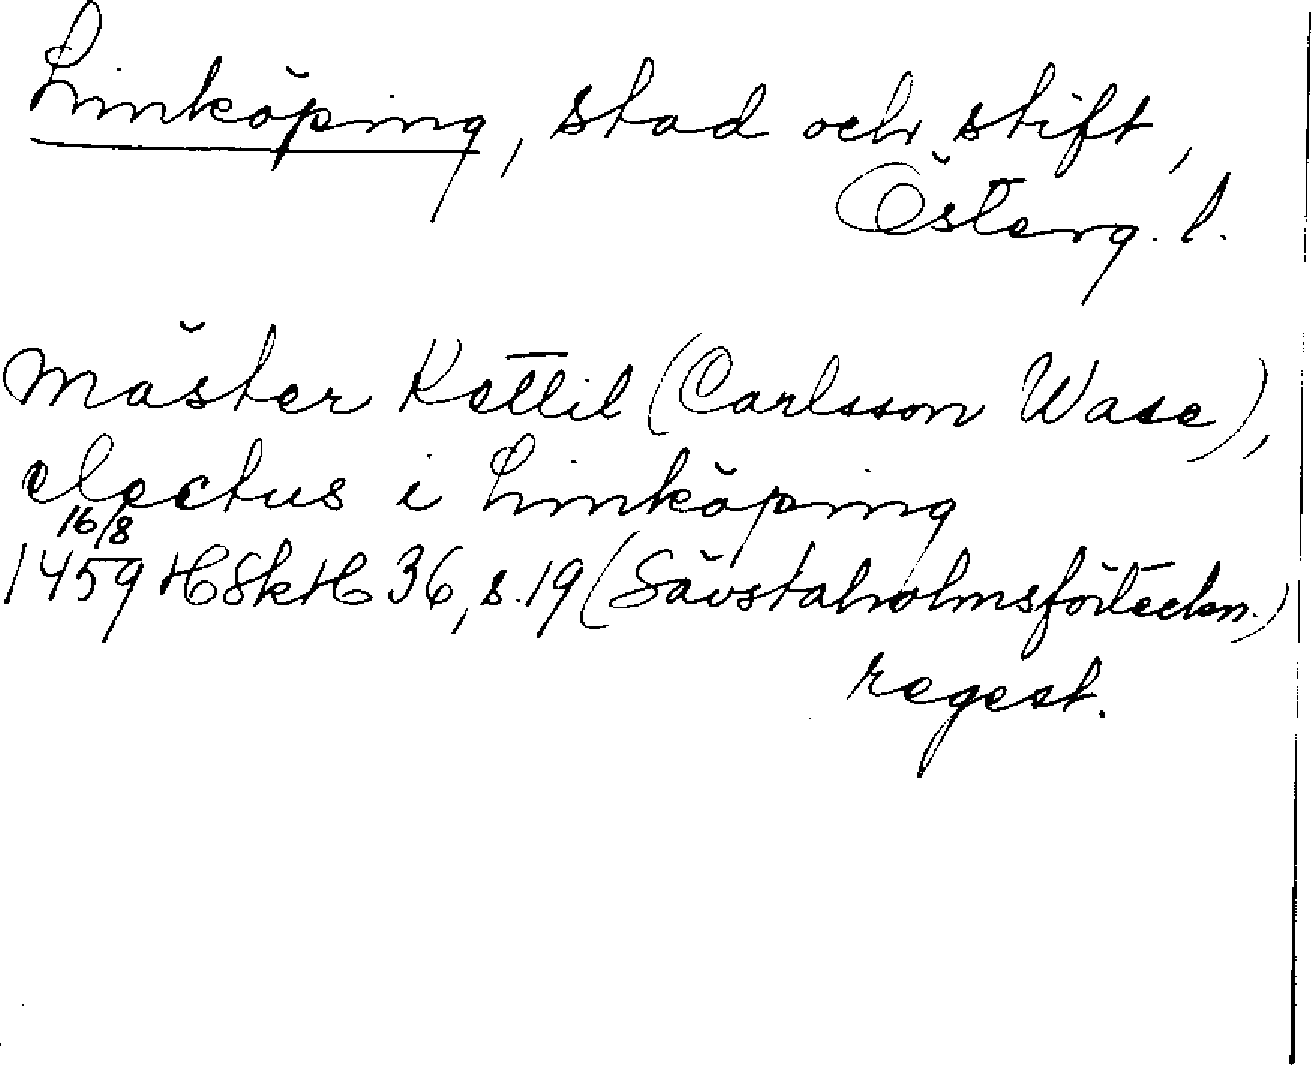 Linköping, stad och stift,
Österg. l.
mäster Kettil (Carlsson Wase),
electus i Linköping
16/8
1459 HSkH 36, s. 19 (Sävstaholmsförteckn.)
regest.